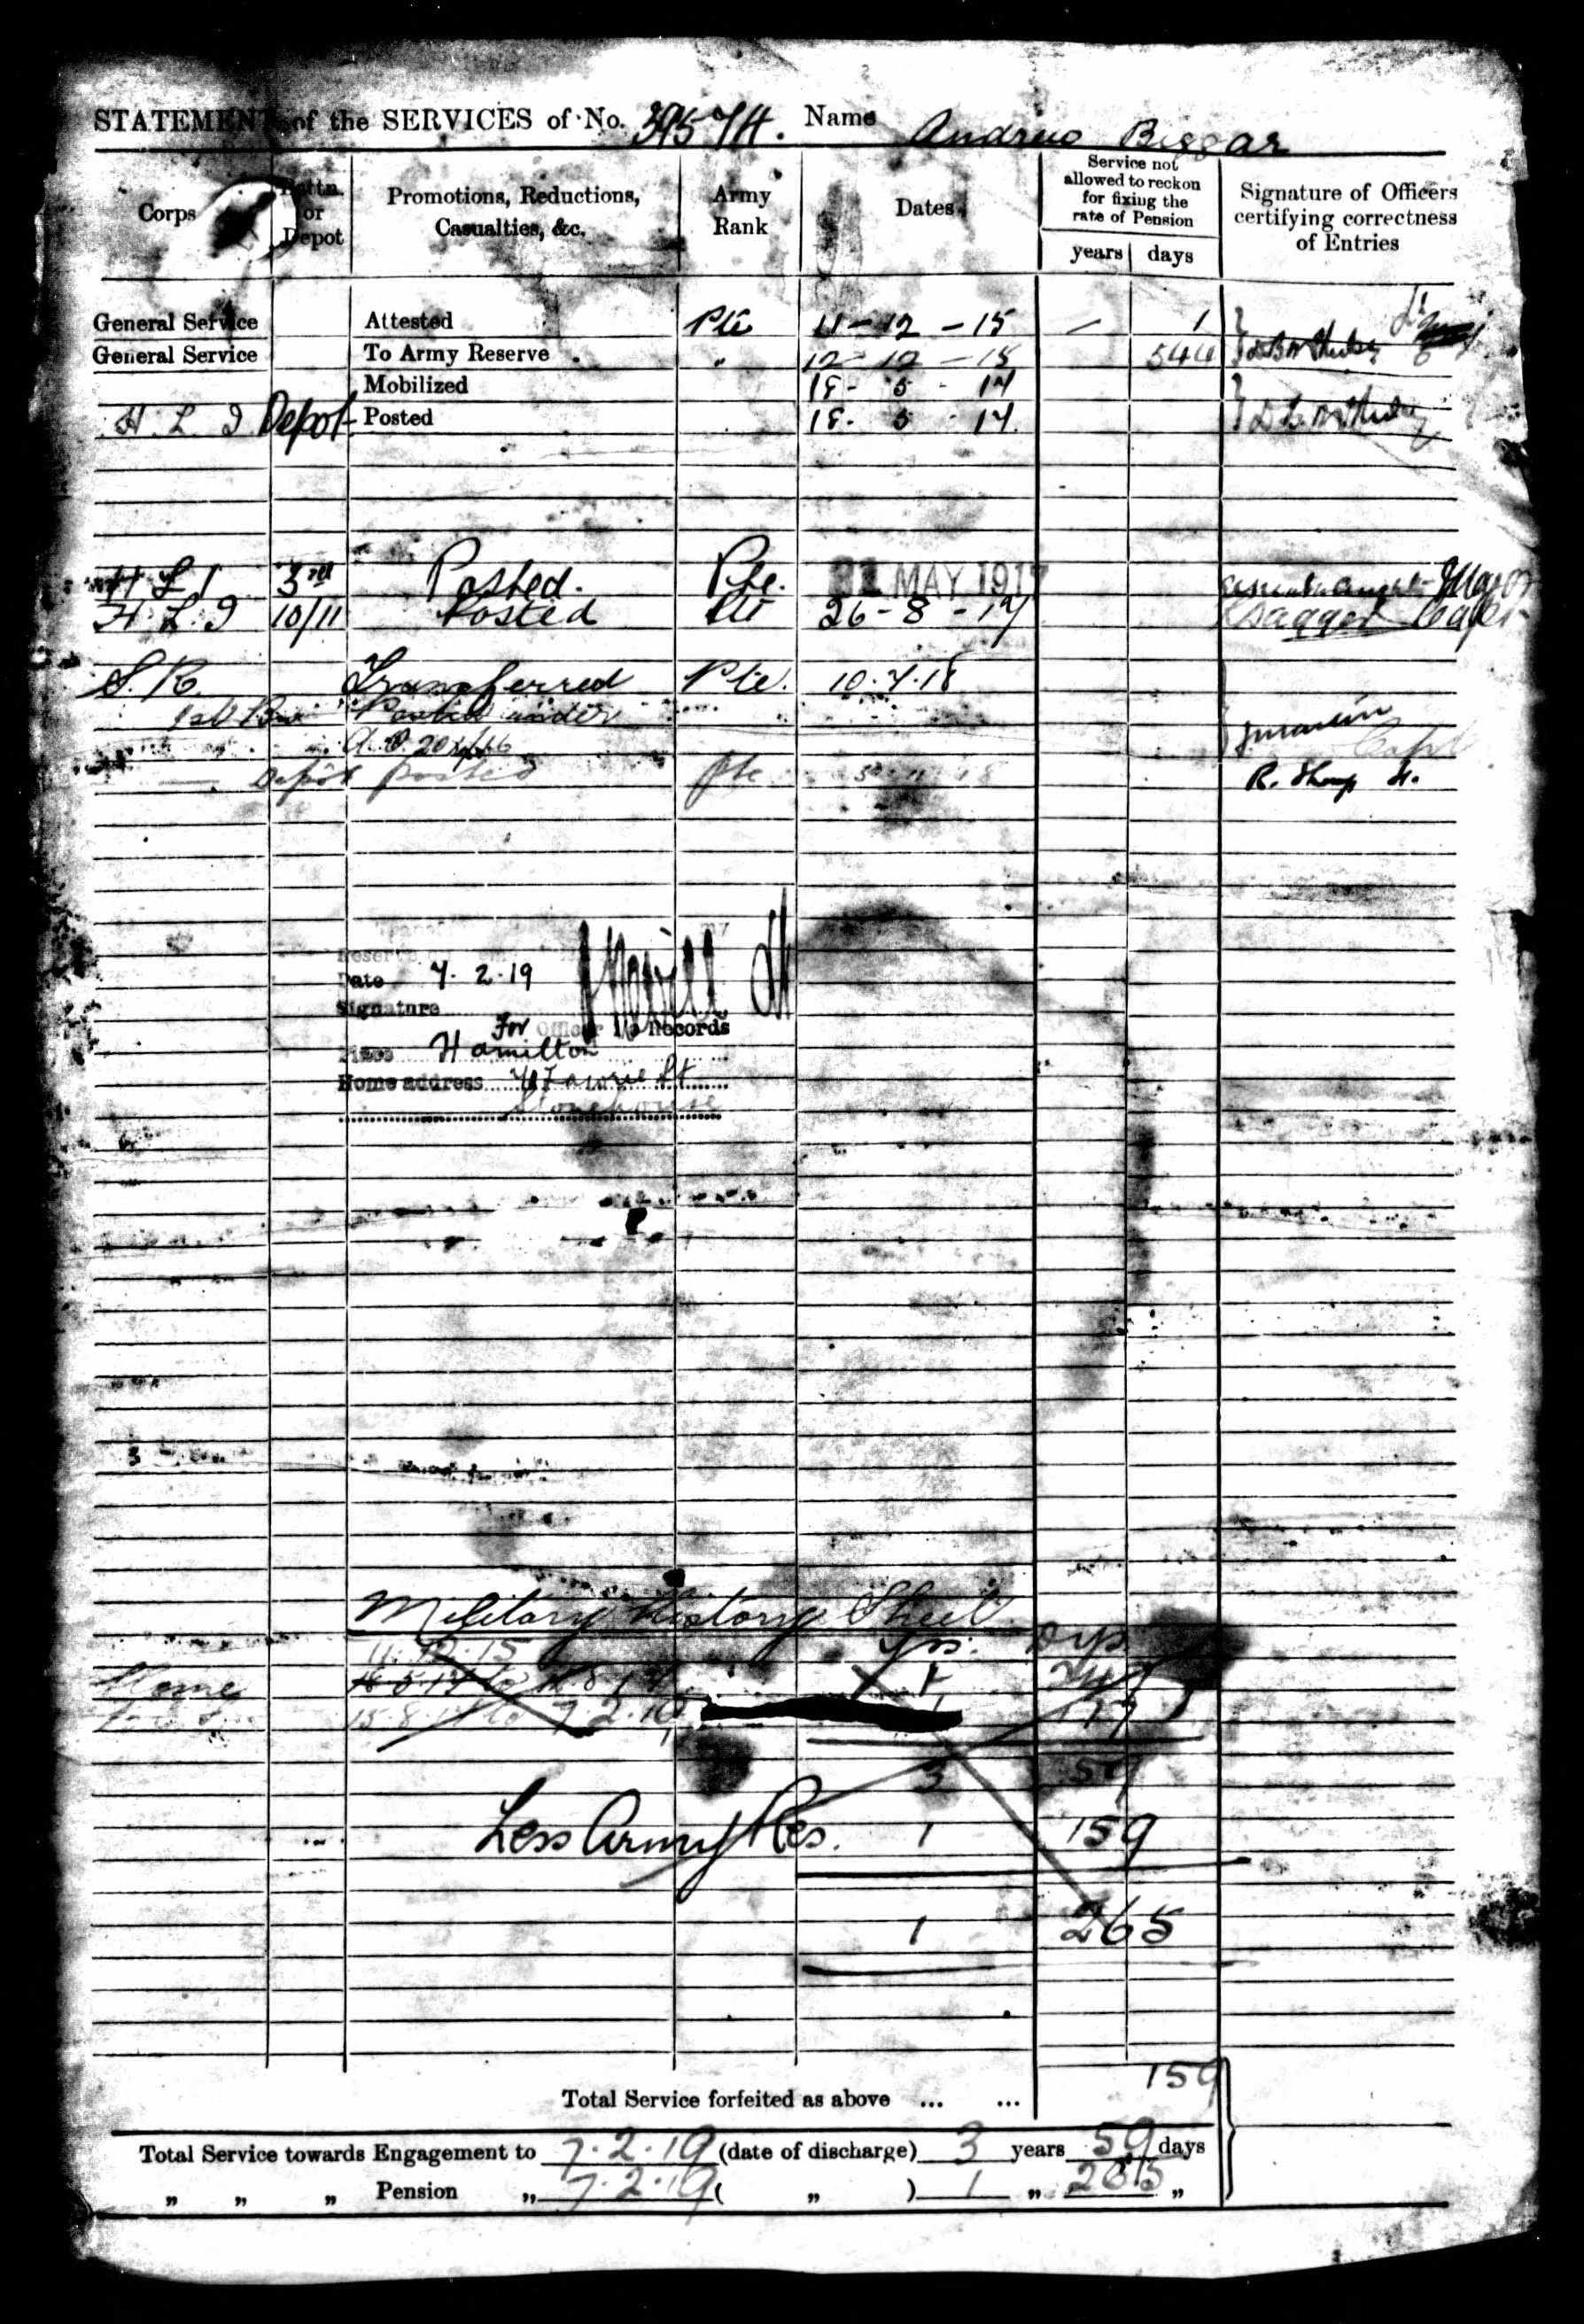 STATEMENT of the SERVICES of No. 39574. Name Andrew Biggar
Corps
Battn. or Depot
Promotions, Reductions, Casualties, &c.
Army Rank
Dates
Service not allowed to reckon for fixing the rate of Pension
years days
Signature of Officers certifying correctness of Entries
General Service Attested Pte 11-12-15 — 1
General Service To Army Reserve " 12-12-15 544
Mobilized 18-5-17
H.L.I Depot Posted 18-5-17
H L I 3rd Posted. Pte. 31 MAY 1917 Major
H.L.I 10/11 Posted Pte 26-8-17
S.R. Transferred Pte. 10.7.18
Posted under
Capt
Depot posted Pte 18 R. Sharp Lt.
Reserve
Date 7.2.19
Signature
For Officer i/c Records
Place Hamilton
Home address Lawrie St
Stonehouse
Military History Sheet
11.12.15 yrs. Dys.
Home 1 247
7.2.19 177
3 59
Less Army Res. 1 159
1 265
Total Service forfeited as above ... ... 159
Total Service towards Engagement to 7.2.19 (date of discharge) 3 years 59 days
" " " Pension " 7.2.19 ( " ) 1 " 265 "